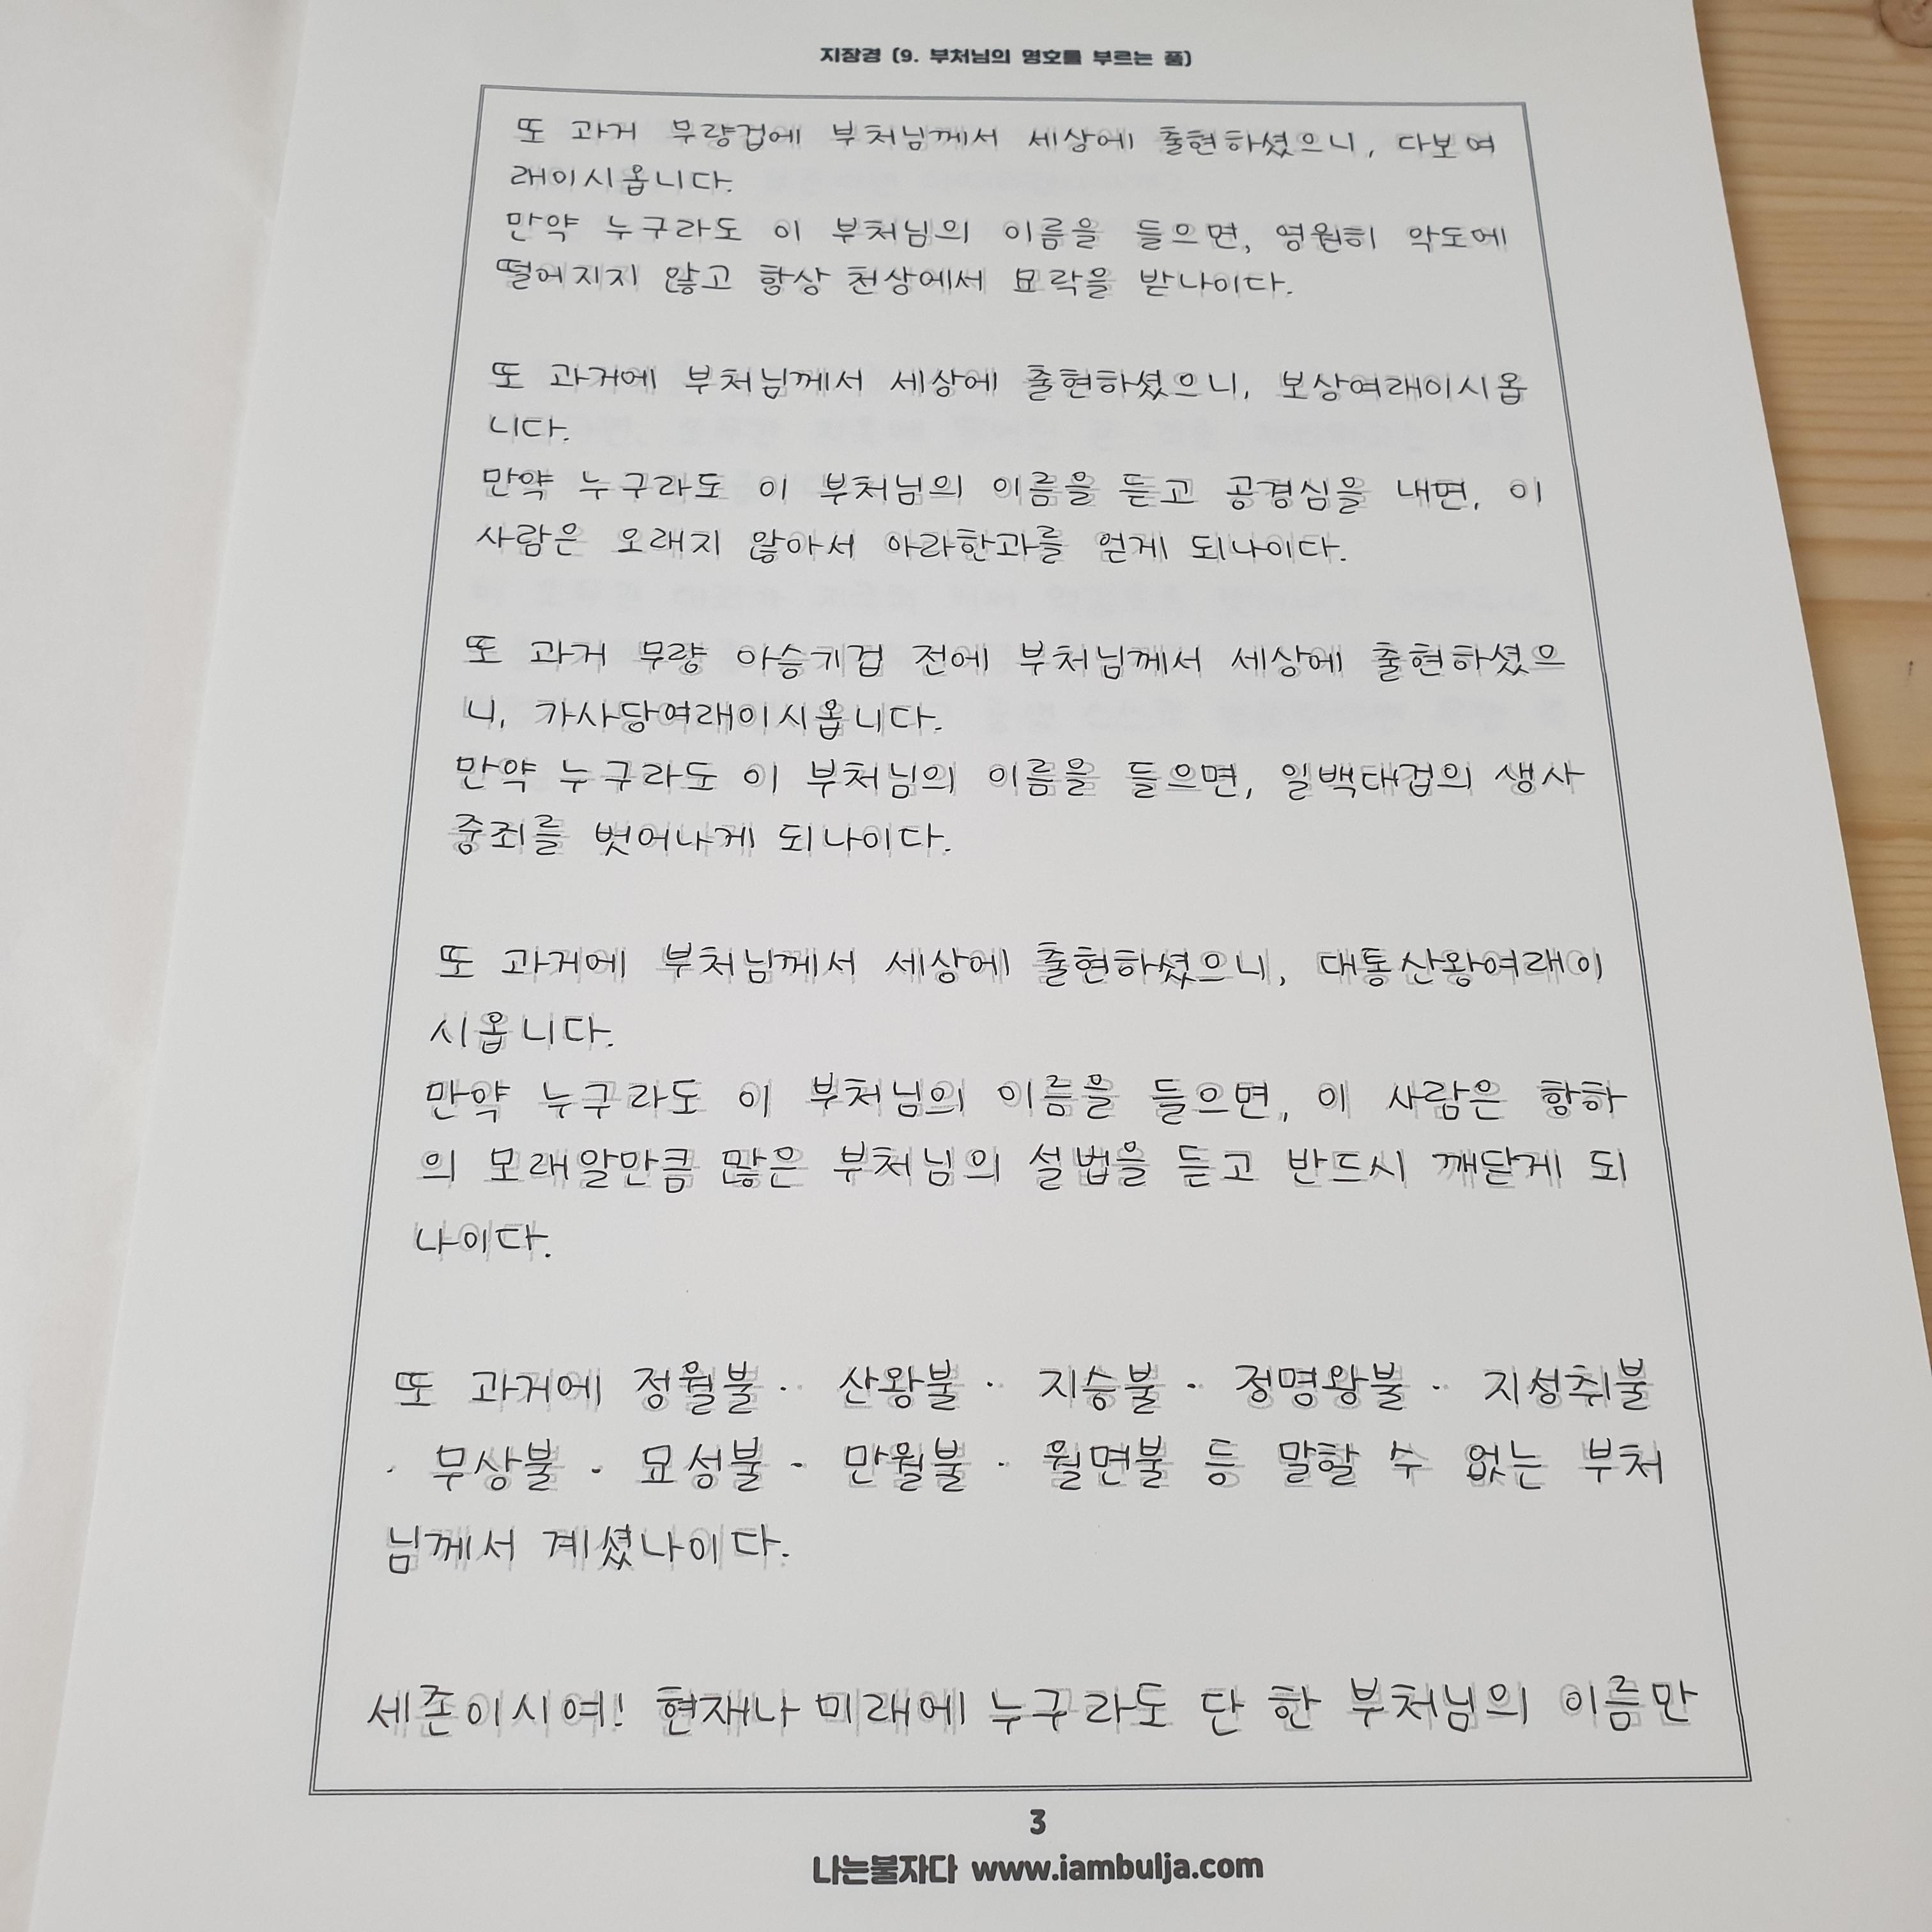 지장경 (9. 부처님의 명호를 부르는 품)
또 과거 무량겁에 부처님께서 세상에 출현하셨으니, 다보여
래이시옵니다.
만약 누구라도 이 부처님의 이름을 들으면, 영원히 악도에
떨어지지 않고 항상 천상에서 묘락을 받나이다.
또 과거에 부처님께서 세상에 출현하셨으니, 보상여래이시옵
니다.
만약 누구라도 이 부처님의 이름을 듣고 공경심을 내면, 이
사람은 오래지 않아서 아라한과를 얻게 되나이다.
또 과거 무량 아승기겁 전에 부처님께서 세상에 출현하셨으
니, 가사당여래이시옵니다.
만약 누구라도 이 부처님의 이름을 들으면, 일백대겁의 생사
중죄를 벗어나게 되나이다.
또 과거에 부처님께서 세상에 출현하셨으니, 대통산왕여래이
시옵니다.
만약 누구라도 이 부처님의 이름을 들으면, 이 사람은 항하
의 모래알만큼 많은 부처님의 설법을 듣고 반드시 깨닫게 되
나이다.
또 과거에 정월불 · 산왕불 · 지승불 · 정명왕불 · 지성취불
· 무상불 · 묘성불 · 만월불 · 월면불 등 말할 수 없는 부처
님께서 계셨나이다.
세존이시여! 현재나 미래에 누구라도 단 한 부처님의 이름만
3
나는불자다 www.iambulja.com